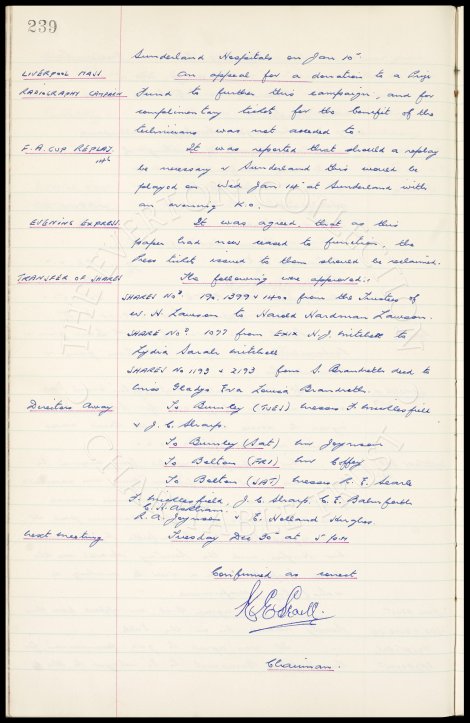 239
Sunderland Hospitals on Jan 10th
LIVERPOOL MASS An appeal for a donation to a Prize
RADIOGRAPHY CAMPAIGN Fund to further this campaign, and for
complimentary tickets for the benefit of the
technicians was not acceded to.
F.A. CUP REPLAY It was reported that should a replay
be necessary v Sunderland this would be
played on Wed Jan 14th at Sunderland with
an evening K.o.
EVENING EXPRESS It was agreed, that as this
paper had now ceased to function, the
Press ticket issued to them should be reclaimed.
TRANSFER OF SHARES The following were approved:
SHARES Nos. 190, 1399 & 1400 from the Trustees of
W. H. Lawson to Harold Hardman Lawson.
SHARE No. 1077 from Exix N. J. Mitchell to
Lydia Sarah Mitchell
SHARES No 1193 & 2193 from S. Brandreth decd to
Miss Gladys Eva Louisa Brandreth.
Directors Away To Burnley (TUES) Messrs F. Micklesfield
& J. C. Sharp.
To Burnley (Sat) Mr Joynson
To Bolton (FRI) Mr Coffey
To Bolton (SAT) Messrs R. F. Searle
F. Micklesfield, J. C. Sharp, C. E. Balmforth
C. H. Askham,
R. A. Joynson & E. Holland Hughes.
Next meeting Tuesday Dec 30th at 5 pm
Confirmed as correct
Chairman.
THE EVERTON COLLECTION
CHARITABLE TRUST